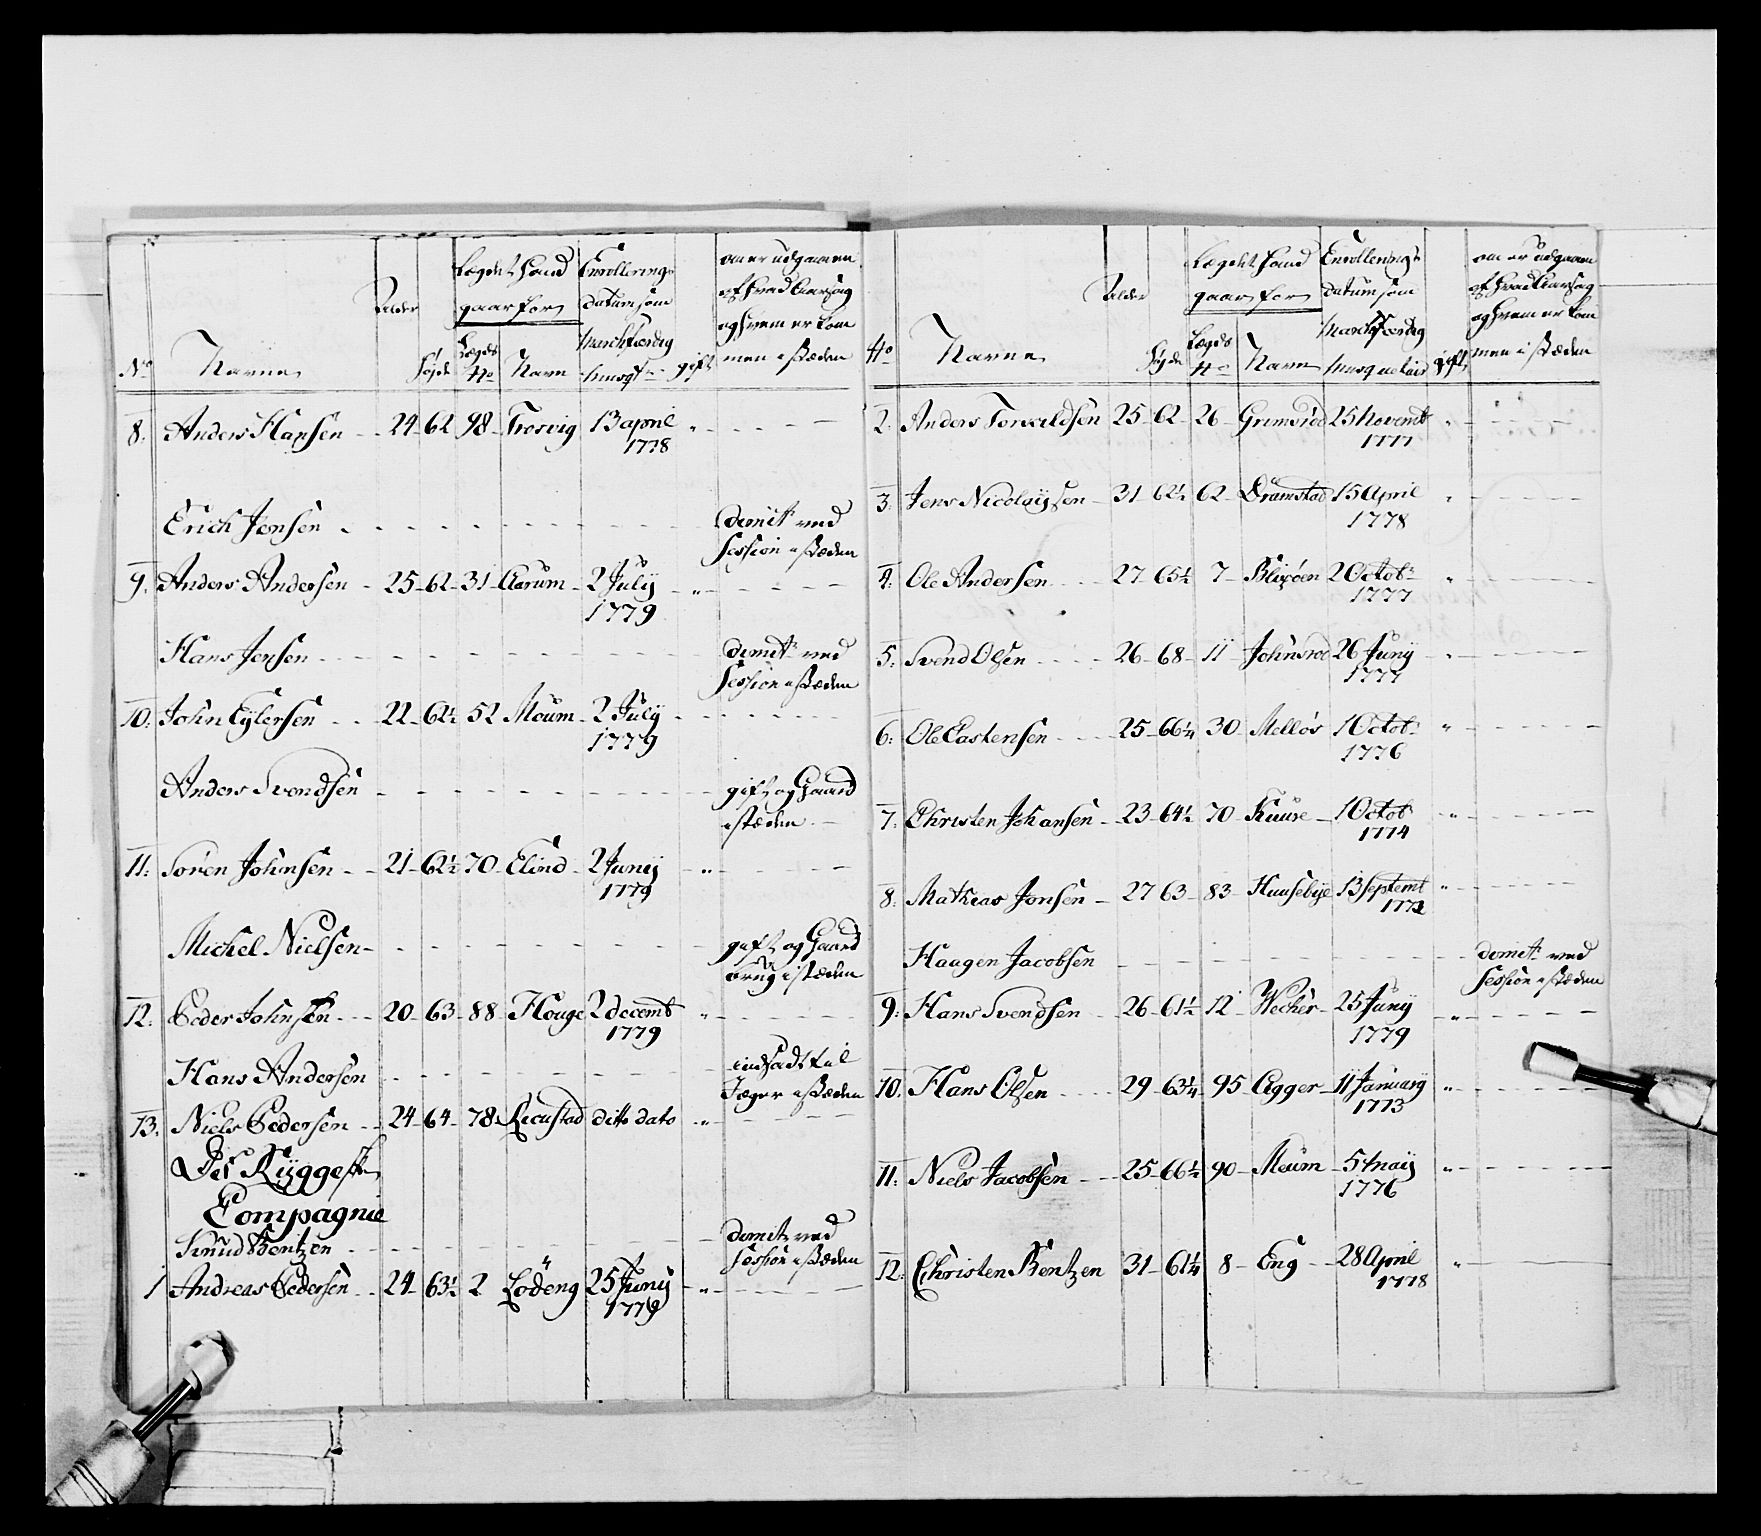 No Navne Alder Høyde Lægdet hand gaar for Lægds No Navn Enrollerings datum som Marchfærdig Musqt gift om er udgaaen af hvad Aarsag og hvem er kommen i stæden
8. Anders Hansen 24 62 98 Trosvig 13 april
1778
Erich Jensen dimit ved
Session i stæden
9. Anders Andersen 25 62 31 Aarum 2 July
1779
Hans Jensen dimit ved
Session i stæden
10. John Eylersen 22 62½ 52 Moum 2 July
1779
Anders Svendsen gift og Gaard
i stæden
11. Soren Johnsen 21 62½ 70 Elind 2 Junij
1779
Michel Nielsen gift og Gaard
brug i stæden
12. Peder Johnsen 20 63 88 Houge 2 decemb
1779
Hans Andersen indsadt til
Jæger i stæden
13. Niels Pedersen 24 64 78 ditto dato
Det Ryggeske
Compagnie
Knud Bentzen dimit ved
Session i stæden
1 Andreas Pedersen 24 63½ 2 Lödeng 25 Junij
1779
No Navne Alder Høyde Lægdet hand gaar for Lægds No Navn Enrollerings datum som Marchfærdig Musquetair gift om er udgaaen af hvad Aarsag og hvem er kommen i stæden
2. Anders Torvildsen 25 62 26 Grimsröd 25 Novemb
1777
3. Jens Nicolaysen 31 62½ 62 Dramstad 15 April
1778
4. Ole Andersen 27 65½ 7 Blixöen 2 Octob
1777
5. Svend Olsen 26 68 11 Johnsrod 26 Juny
1777
6. Ole Castensen 25 66¼ 30 Mellös 1 Octob
1776
7. Christen Johansen 23 64½ 70 Kuure 1 Octob
1774
8. Mathias Jonsen 27 63 83 Huusebye 13 Septemb
Haagen Jacobsen dimit ved
Session i stæden
9. Hans Svendsen 26 61½ 12 25 Juny
1779
10. Hans Olsen 29 63¼ 95 Agger 11 January
1773
11. Niels Jacobsen 25 66¼ 90 Meum 5 May
1776
12. Christen Bentzen 31 61¼ 8 Eng 28 April
1778